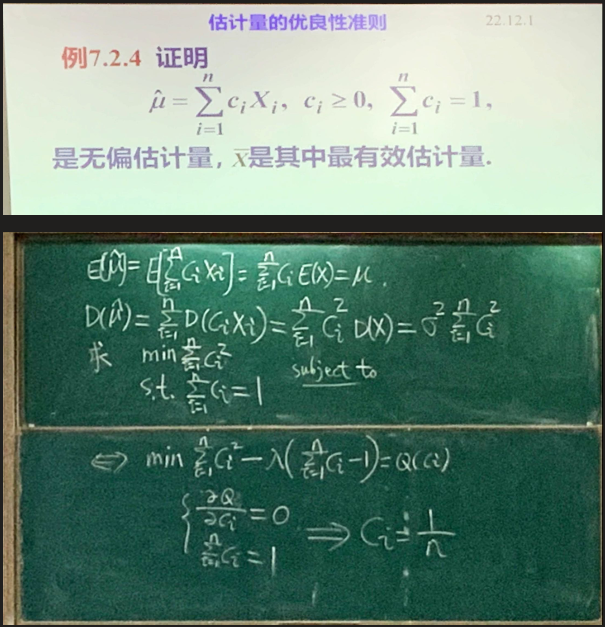 估计量的优良性准则
22.12.1
例7.2.4 证明
μ̂ = ∑_{i=1}^{n} c_i X_i, c_i ≥ 0, ∑_{i=1}^{n} c_i = 1,
是无偏估计量, x̄是其中最有效估计量.
E(μ̂) = E[∑_{i=1}^{n} C_i X_i] = ∑_{i=1}^{n} C_i E(X) = μ.
D(μ̂) = ∑_{i=1}^{n} D(C_i X_i) = ∑_{i=1}^{n} C_i^2 D(X) = σ^2 ∑_{i=1}^{n} C_i^2
求 min ∑_{i=1}^{n} C_i^2
s.t. ∑_{i=1}^{n} C_i = 1 subject to
⇔ min ∑_{i=1}^{n} C_i^2 - λ(∑_{i=1}^{n} C_i - 1) = Q(C_i)
{ ∂Q/∂C_i = 0
∑_{i=1}^{n} C_i = 1 ⇒ C_i = 1/n